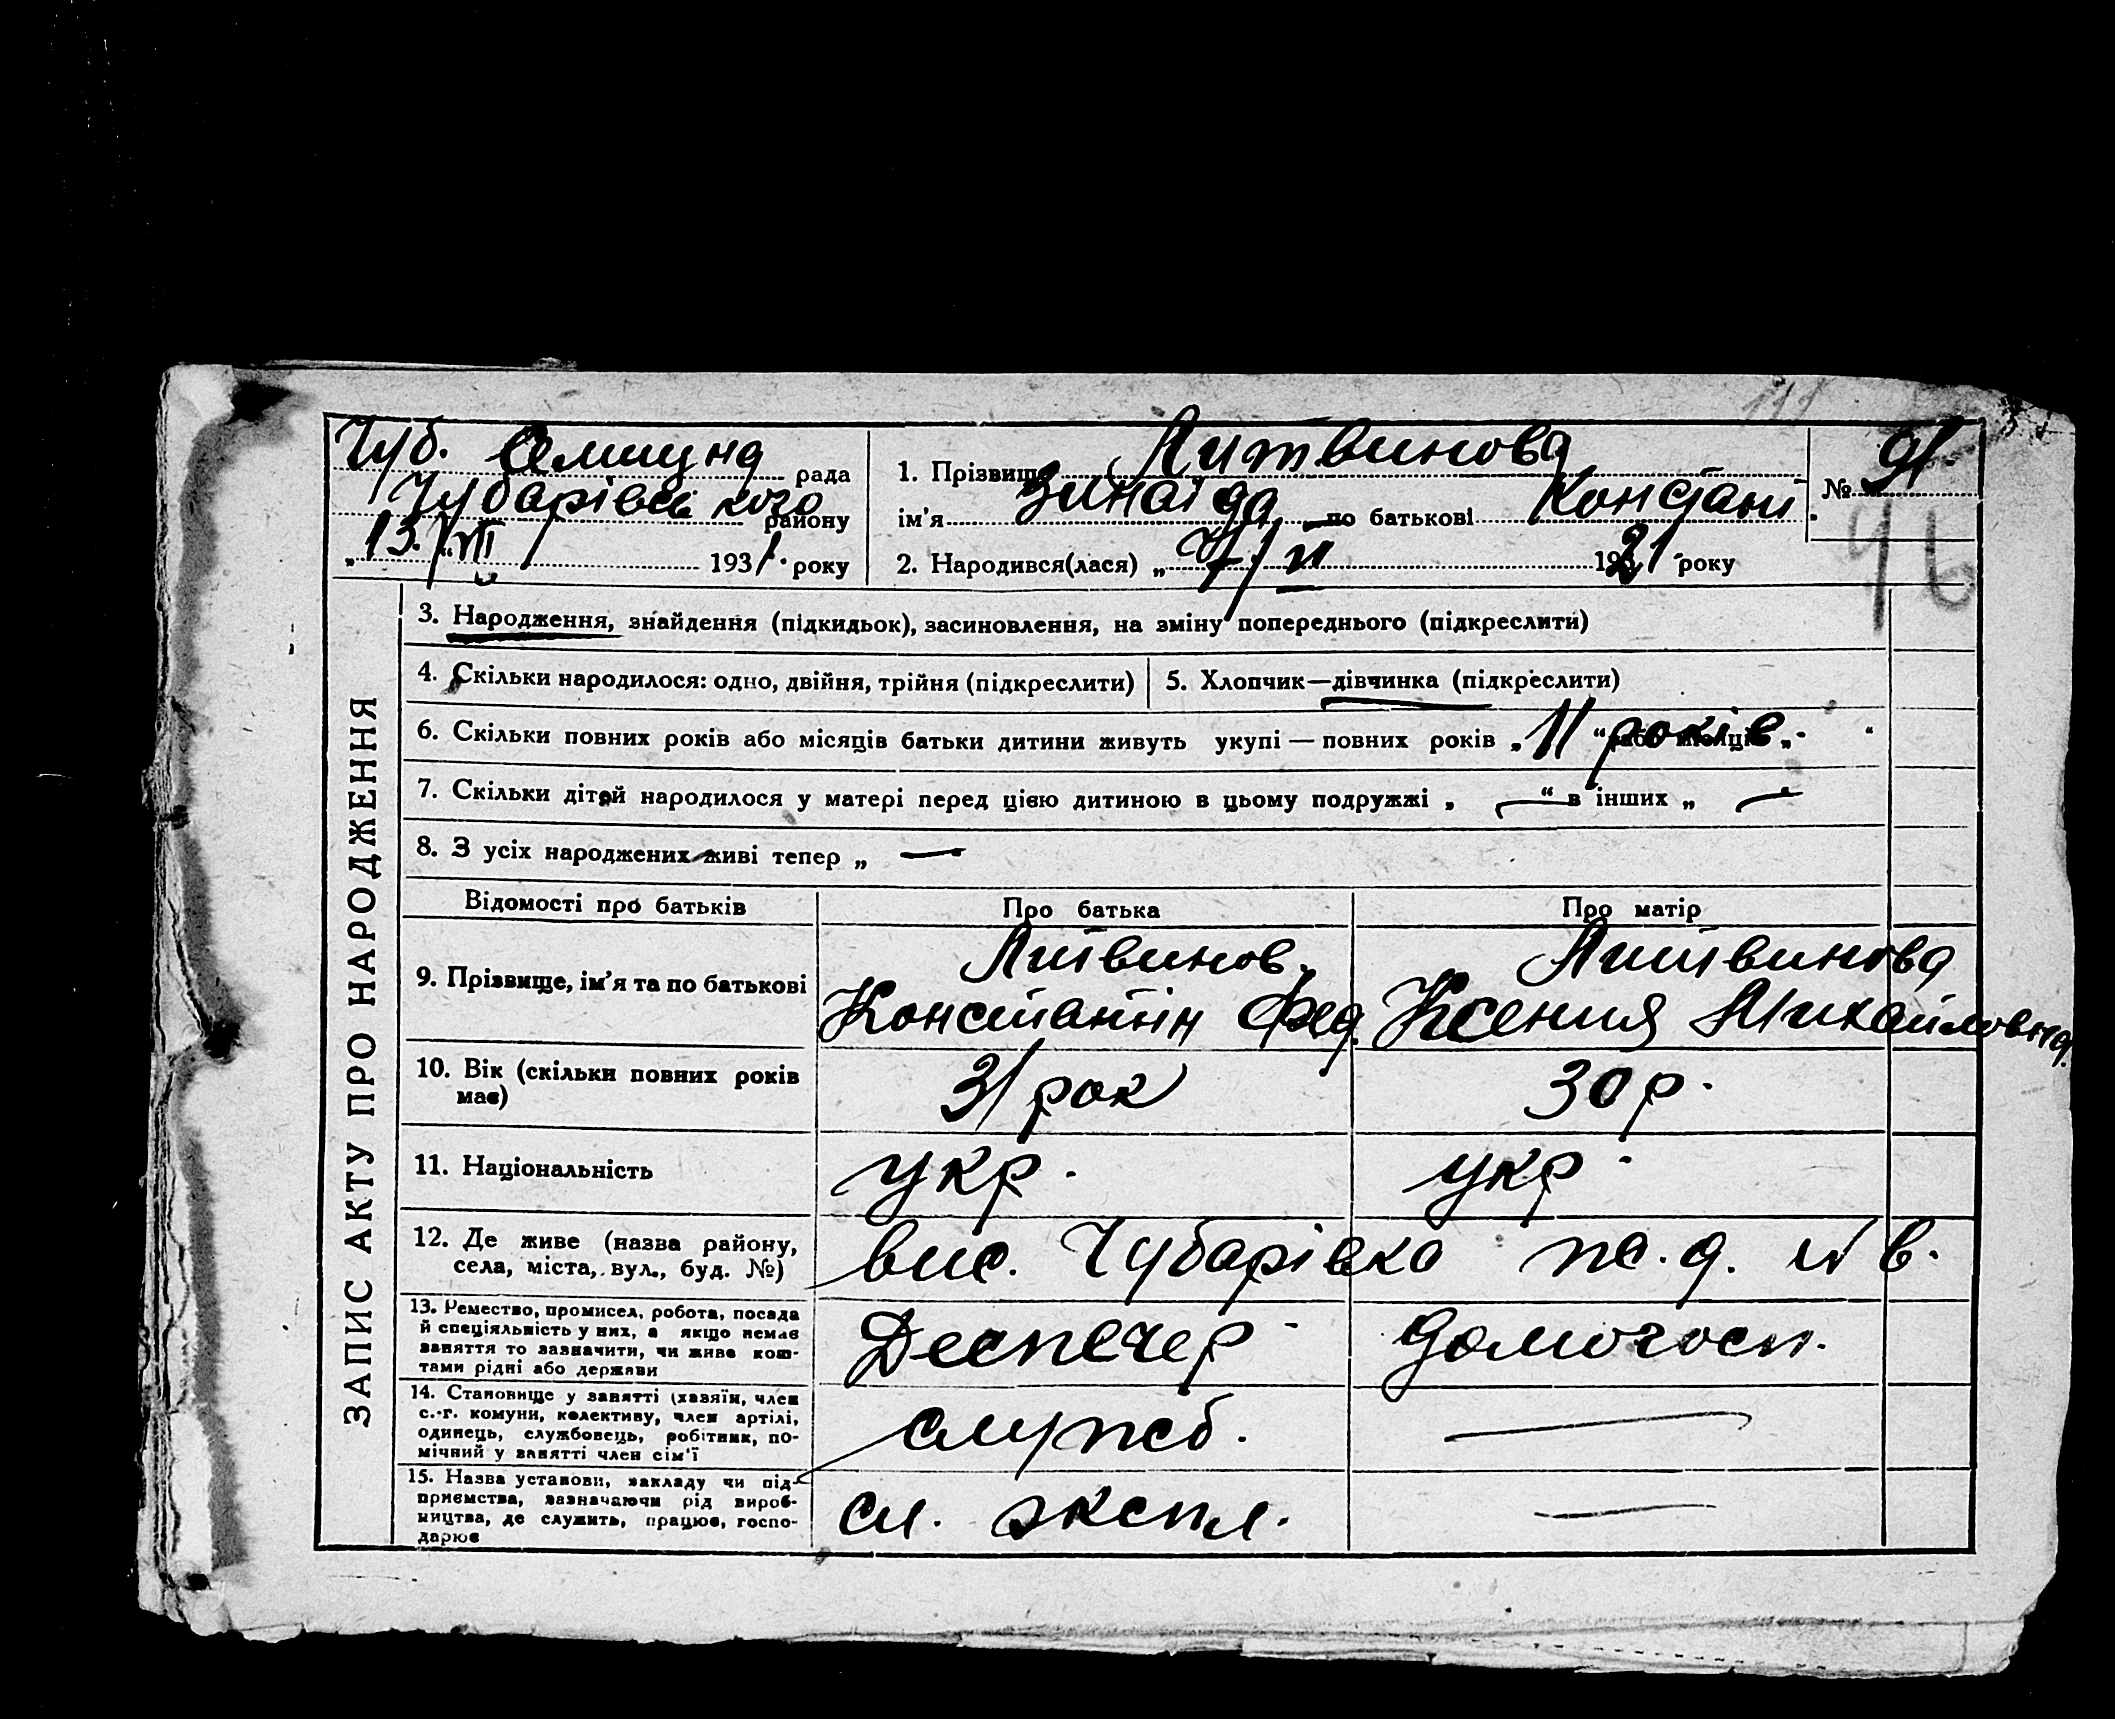 Чуб. Селищна рада
Чубарівського району
„13./VII 1931. року
1. Прізвище Литвинова
ім’я Зинаїда по батькові Констант.
2. Народився(лася) „7/VI 1921 року
№ 91.
96
ЗАПИС АКТУ ПРО НАРОДЖЕННЯ
3. Народження, знайдення (підкидьок), засиновлення, на зміну попереднього (підкреслити)
4. Скільки народилося: одно, двійня, трійня (підкреслити)
5. Хлопчик—дівчинка (підкреслити)
6. Скільки повних років або місяців батьки дитини живуть укупі — повних років „ 11 років. “ або місяців „ “
7. Скільки дітей народилося у матері перед цією дитиною в цьому подружжі „ — “ в інших „ —
8. З усіх народжених живі тепер „ —
Відомості про батьків
Про батька
Про матір
9. Прізвище, ім’я та по батькові
Литвинов.
Константін Фед.
Литвинова
Ксения Михайловна.
10. Вік (скільки повних років
має)
31 рок
30 р.
11. Національність
укр.
укр.
12. Де живе (назва району,
села, міста, вул., буд. №)
вис. Чубарівка
13. Ремество, промисел, робота, посада
й спеціяльність у них, а якщо немає
заняття то зазначити, чи живе кош-
тами рідні або держави
Деспечер
домогосп.
14. Становище у занятті (хазяїн, член
с.-г. комуни, колективу, член артілі,
одинець, службовець, робітник, по-
мічний у занятті член сім’ї
служб.
—
15. Назва установи, закладу чи під-
приємства, зазначаючи рід вироб-
ництва, де служить, працює, госпо-
дарює
сл. экспл.
—